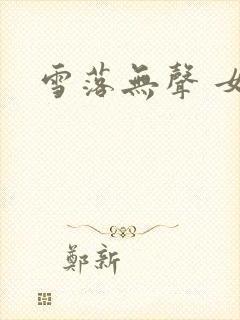 雪落無聲 女
鄭新